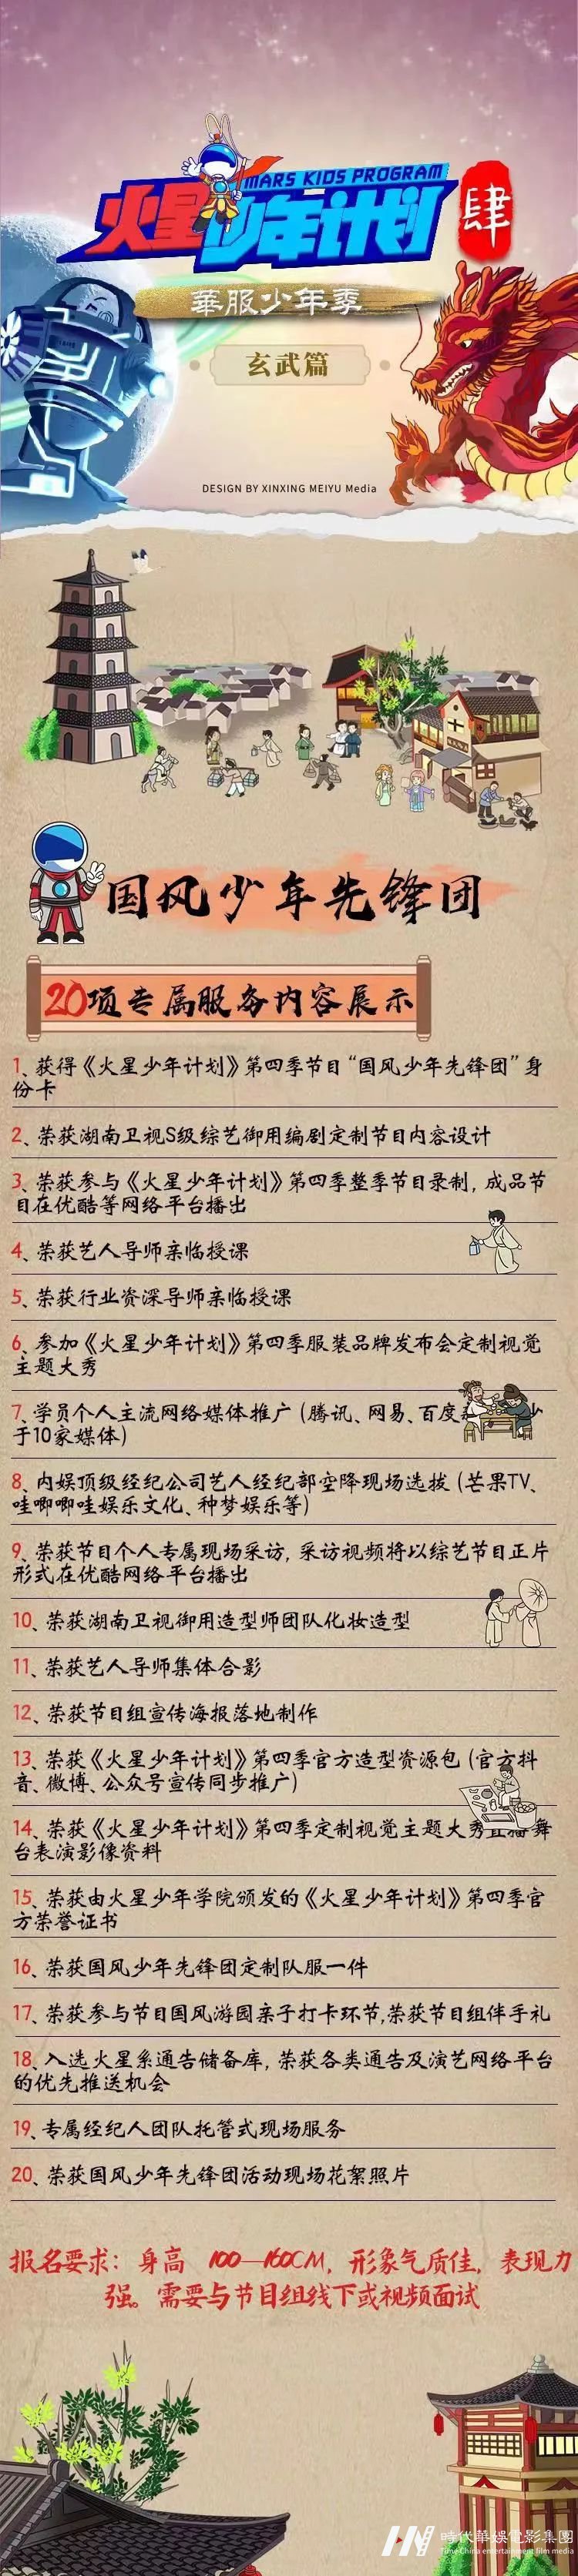 MARS KIDS PROGRAM
火星少年计划
肆
華服少年季
玄武篇
DESIGN BY XINXING MEIYU Media
国风少年先锋团
20项专属服务内容展示
1、获得《火星少年计划》第四季节目“国风少年先锋团”身
份卡
2、荣获湖南卫视S级综艺御用编剧定制节目内容设计
3、荣获参与《火星少年计划》第四季整季节目录制，成品节
目在优酷等网络平台播出
4、荣获艺人导师亲临授课
5、荣获行业资深导师亲临授课
6、参加《火星少年计划》第四季服装品牌发布会定制视觉
主题大秀
7、学员个人主流网络媒体推广（腾讯、网易、百度
于10家媒体）
8、内娱顶级经纪公司艺人经纪部空降现场选拔（芒果TV、
哇唧唧哇娱乐文化、种梦娱乐等）
9、荣获节目个人专属现场采访，采访视频将以综艺节目正片
形式在优酷网络平台播出
10、荣获湖南卫视御用造型师团队化妆造型
11、荣获艺人导师集体合影
12、荣获节目组宣传海报落地制作
13、荣获《火星少年计划》第四季官方造型资源包（官方抖
音、微博、公众号宣传同步推广）
14、荣获《火星少年计划》第四季定制视觉主题大秀直播舞
台表演影像资料
15、荣获由火星少年学院颁发的《火星少年计划》第四季官
方荣誉证书
16、荣获国风少年先锋团定制队服一件
17、荣获参与节目国风游园亲子打卡环节,荣获节目组伴手礼
18、入选火星系通告储备库，荣获各类通告及演艺网络平台
的优先推送机会
19、专属经纪人团队托管式现场服务
20、荣获国风少年先锋团活动现场花絮照片
报名要求：身高 100—160CM，形象气质佳，表现力
强。需要与节目组线下或视频面试
時代華娛電影集團
Time China entertainment film media